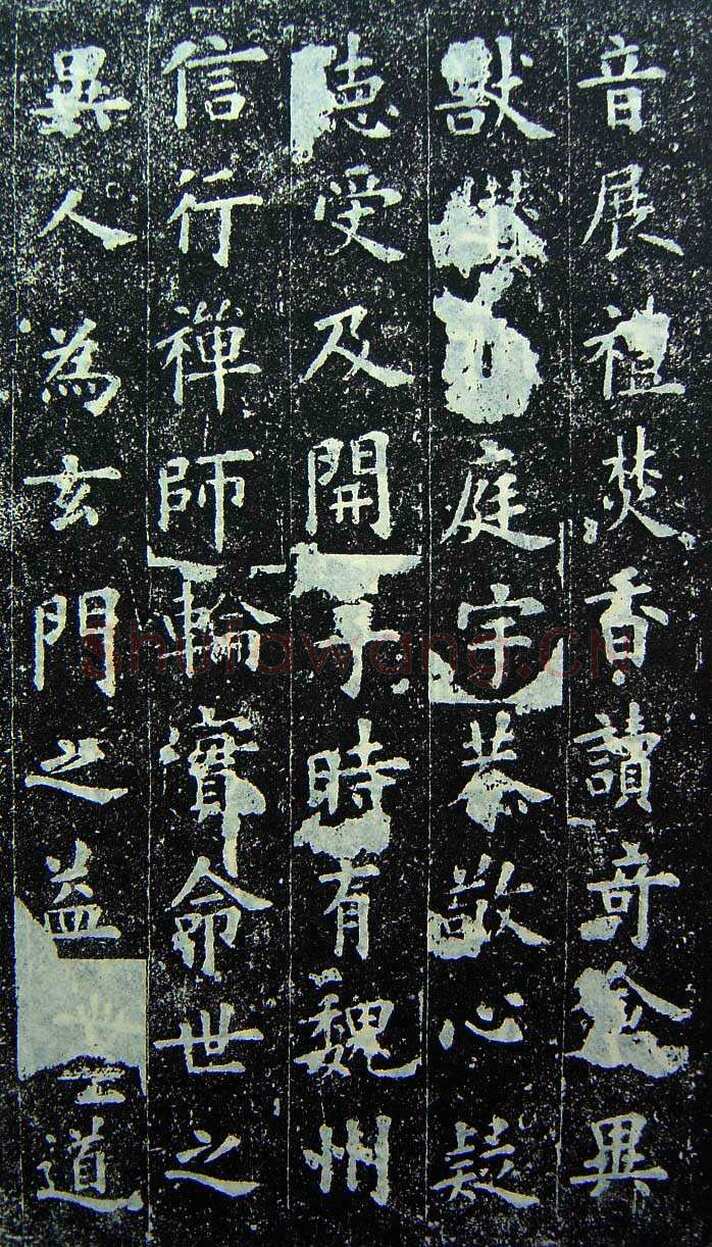 音展禮焚香讀奇禽異
獸庭宇恭敬心疑
受及開于時有魏州
信行禪師輪實命世之
異人為玄門之益道
shufawang.CN